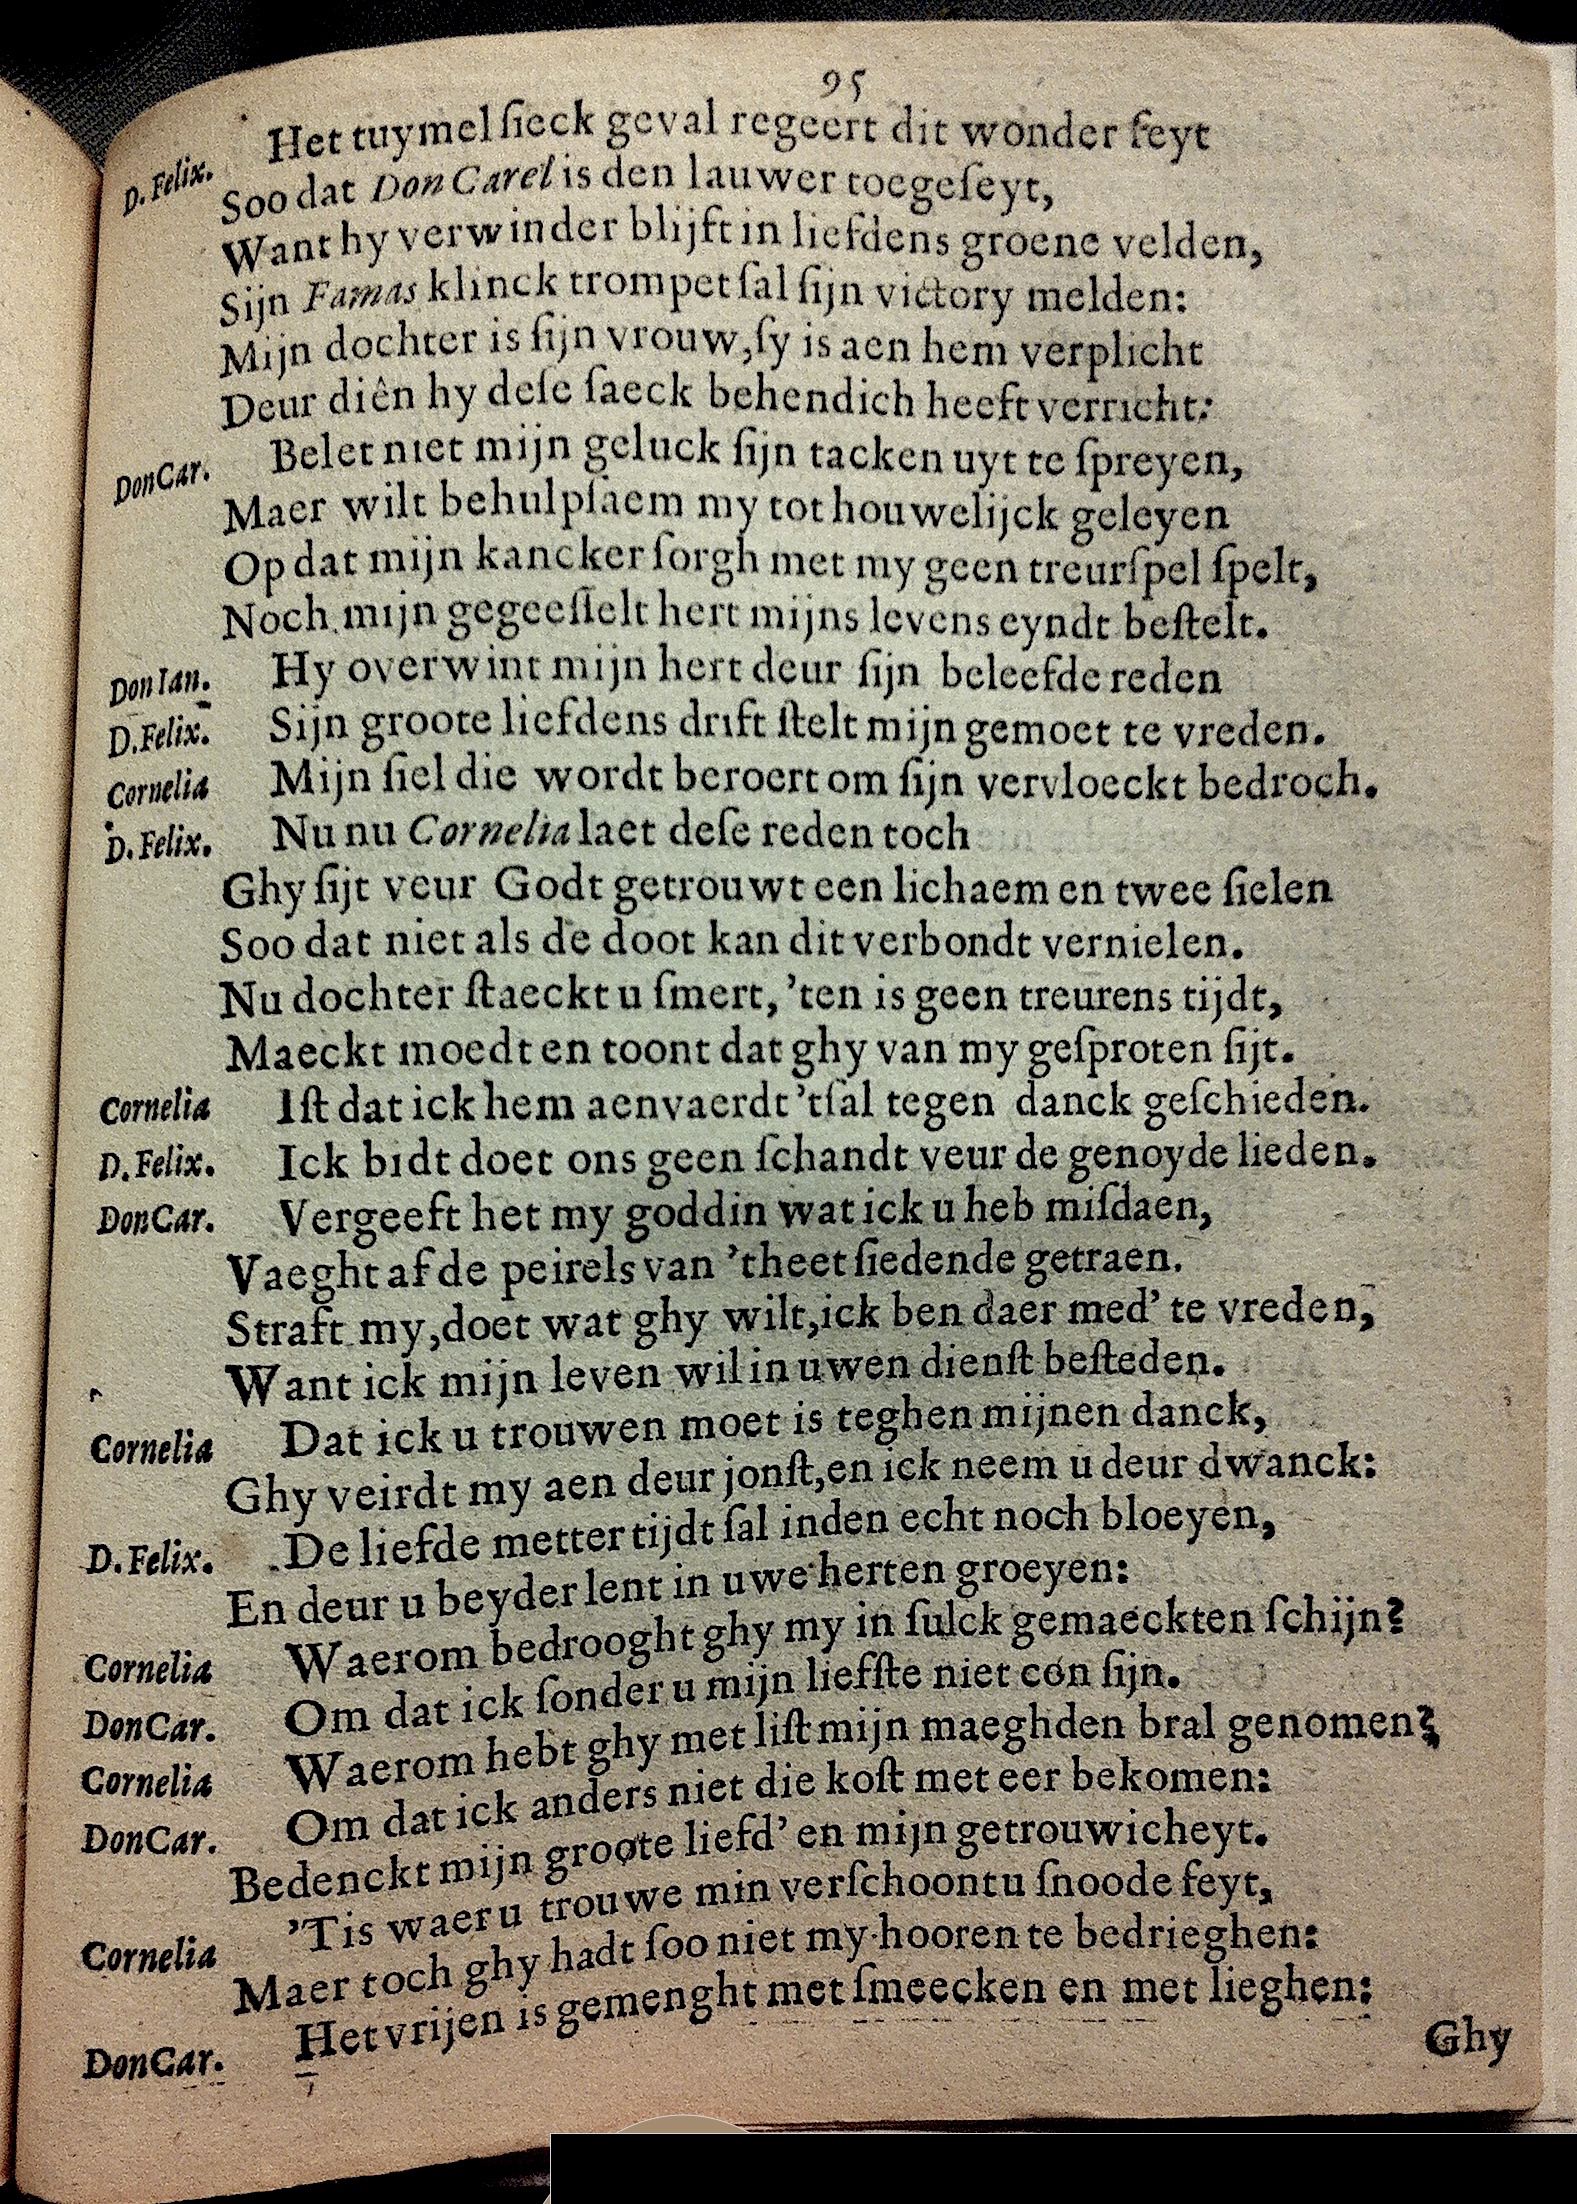 95
D. Felix. Het tuymel ſieck geval regeert dit wonder feyt
Soo dat Don Carel is den lauwer toegeſeyt,
Want hy verwinder blijft in liefdens groene velden,
Sijn Famas klinck trompet ſal ſijn victory melden:
Mijn dochter is ſijn vrouw, ſy is aen hem verplicht
Deur diên hy deſe ſaeck behendich heeft verricht:
Don Car. Belet niet mijn geluck ſijn tacken uyt te ſpreyen,
Maer wilt behulpſaem my tot houwelijck geleyen
Op dat mijn kancker ſorgh met my geen treurſpel ſpelt,
Noch mijn gegeeſſelt hert mijns levens eyndt beſtelt.
Don Ian. Hy overwint mijn hert deur ſijn beleefde reden
D. Felix. Sijn groote liefdens drift ſtelt mijn gemoet te vreden.
Cornelia Mijn ſiel die wordt beroert om ſijn vervloeckt bedroch.
D. Felix. Nu nu Cornelia laet deſe reden toch
Ghy ſijt veur Godt getrouwt een lichaem en twee ſielen
Soo dat niet als de doot kan dit verbondt vernielen.
Nu dochter ſtaeckt u ſmert, 'ten is geen treurens tijdt,
Maeckt moedt en toont dat ghy van my geſproten ſijt.
Cornelia Iſt dat ick hem aenvaerdt 'tſal tegen danck geſchieden.
D. Felix. Ick bidt doet ons geen ſchandt veur de genoyde lieden.
Don Car. Vergeeft het my goddin wat ick u heb miſdaen,
Vaeght af de peirels van 't heet ſiedende getraen.
Straft my, doet wat ghy wilt, ick ben daer med' te vreden,
Want ick mijn leven wil in uwen dienſt beſteden.
Cornelia Dat ick u trouwen moet is teghen mijnen danck,
Ghy veirdt my aen deur jonſt, en ick neem u deur dwanck:
D. Felix. De liefde metter tijdt ſal inden echt noch bloeyen,
En deur u beyder lent in uwe herten groeyen:
Cornelia Waerom bedrooght ghy my in ſulck gemaeckten ſchijn?
Don Car. Om dat ick ſonder u mijn liefſte niet con ſijn.
Cornelia Waerom hebt ghy met liſt mijn maeghden bral genomen?
Don Car. Om dat ick anders niet die koſt met eer bekomen:
Bedenckt mijn groote liefd' en mijn getrouwicheyt.
Cornelia 'Tis waer u trouwe min verſchoont u ſnoode feyt,
Maer toch ghy hadt ſoo niet my hooren te bedrieghen:
Don Car. Het vrijen is gemenght met ſmeecken en met lieghen:
Ghy